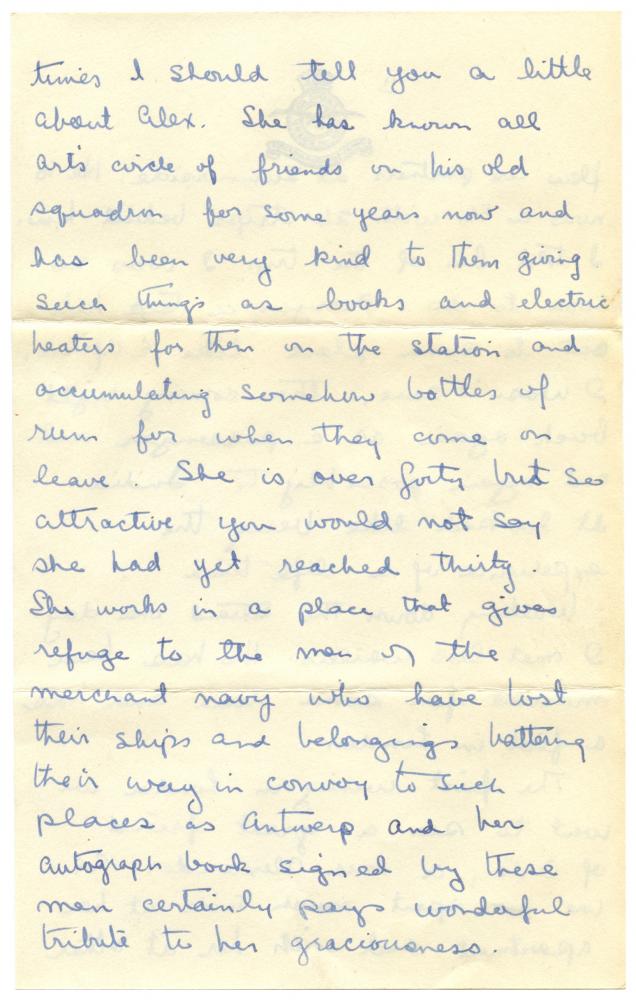 times I should tell you a little
about Alex. She has known all
Art's circle of friends on his old
squadron for some years now and
has been very kind to them giving
such things as books and electric
heaters for them on the station and
accumulating somehow bottles of
rum for when they come on
leave. She is over forty but so
attractive you would not say
she had yet reached thirty.
She works in a place that gives
refuge to the men of the
merchant navy who have lost
their ships and belongings battering
their way in convoy to such
places as Antwerp and her
autograph book signed by these
men certainly pays wonderful
tribute to her graciousness.